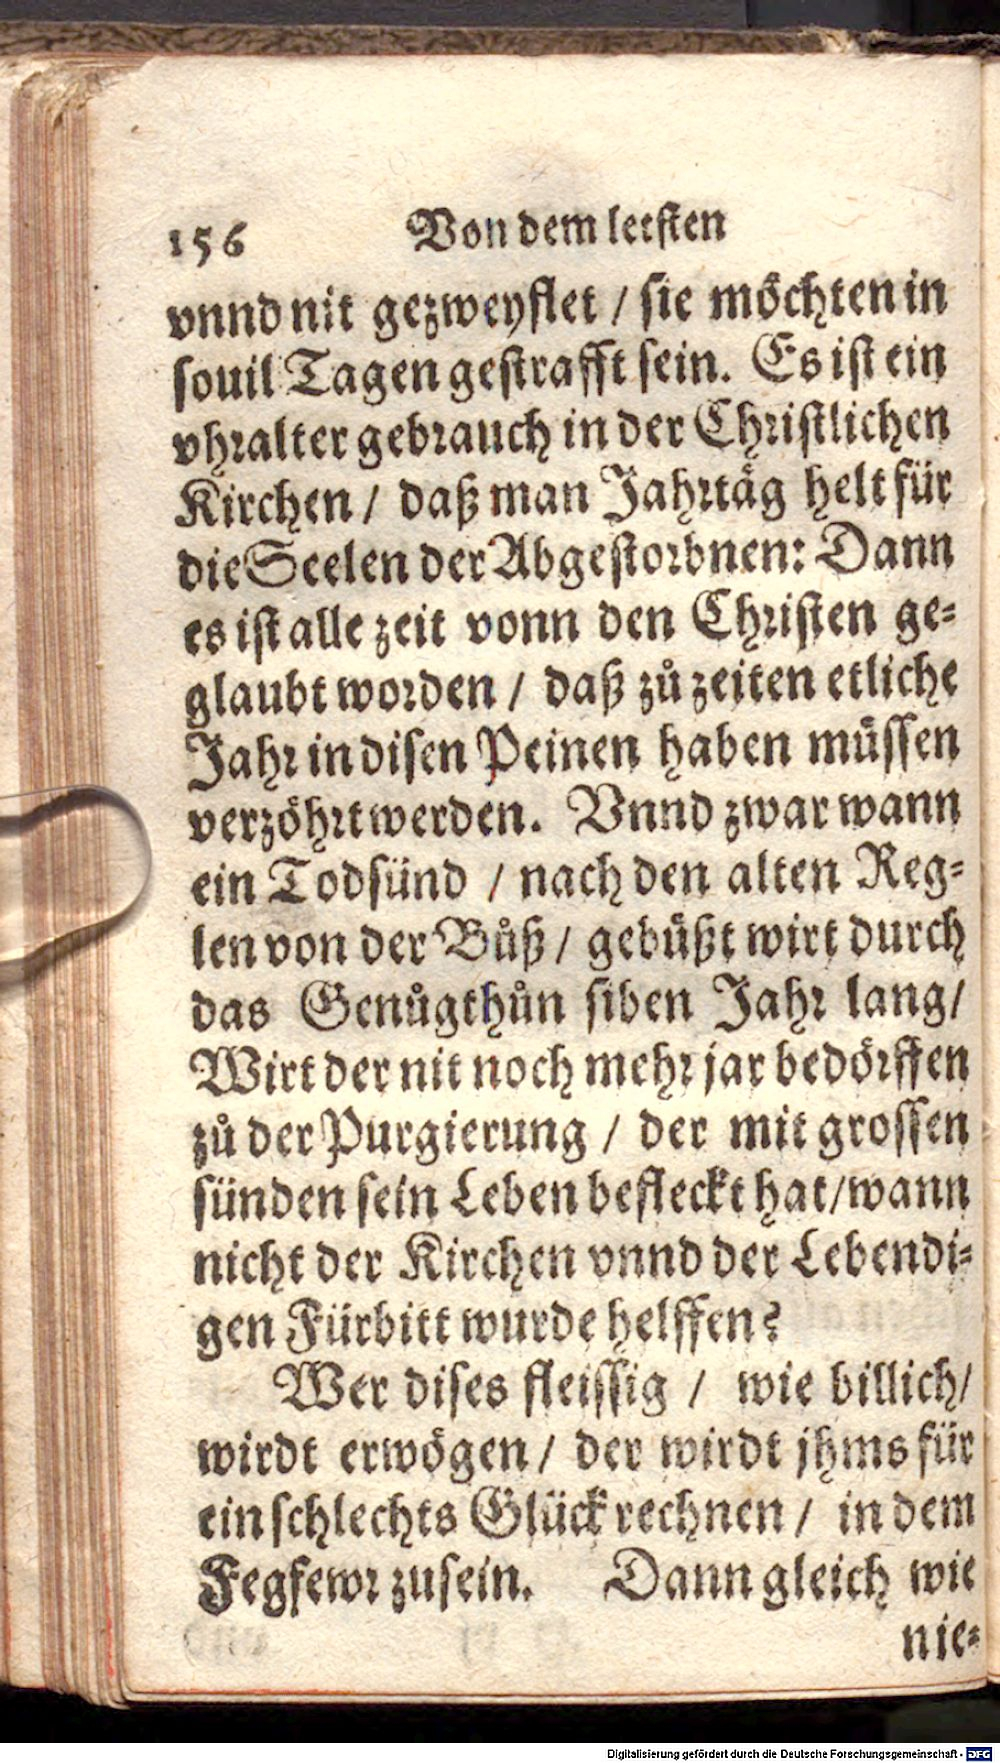 156 Von dem letſten
vnnd nit gezweyflet / ſie möchten in
ſouil Tagen geſtrafft ſein. Es iſt ein
vhralter gebrauch in der Chriſtlichen
Kirchen / daß man Jahrtäg helt für
die Seelen der Abgeſtorbnen: Dann
es iſt alle zeit vonn den Chriſten ge⸗
glaubt worden / daß zů zeiten etliche
Jahr in diſen Peinen haben müſſen
verzöhrt werden. Vnnd zwar wann
ein Todſünd / nach den alten Reg⸗
len von der Bůß / gebüßt wirt durch
das Genůgthůn ſiben Jahr lang /
Wirt der nit noch mehr jar bedörffen
zů der Purgierung / der mit groſſen
ſünden ſein Leben befleckt hat / wann
nicht der Kirchen vnnd der Lebendi⸗
gen Fürbitt wurde helffen?
Wer diſes fleiſſig / wie billich /
wirdt erwögen / der wirdt jhms für
ein ſchlechts Glück rechnen / in dem
Fegfewr zu ſein. Dann gleich wie
nie⸗
Digitalisierung gefördert durch die Deutsche Forschungsgemeinschaft - DFG